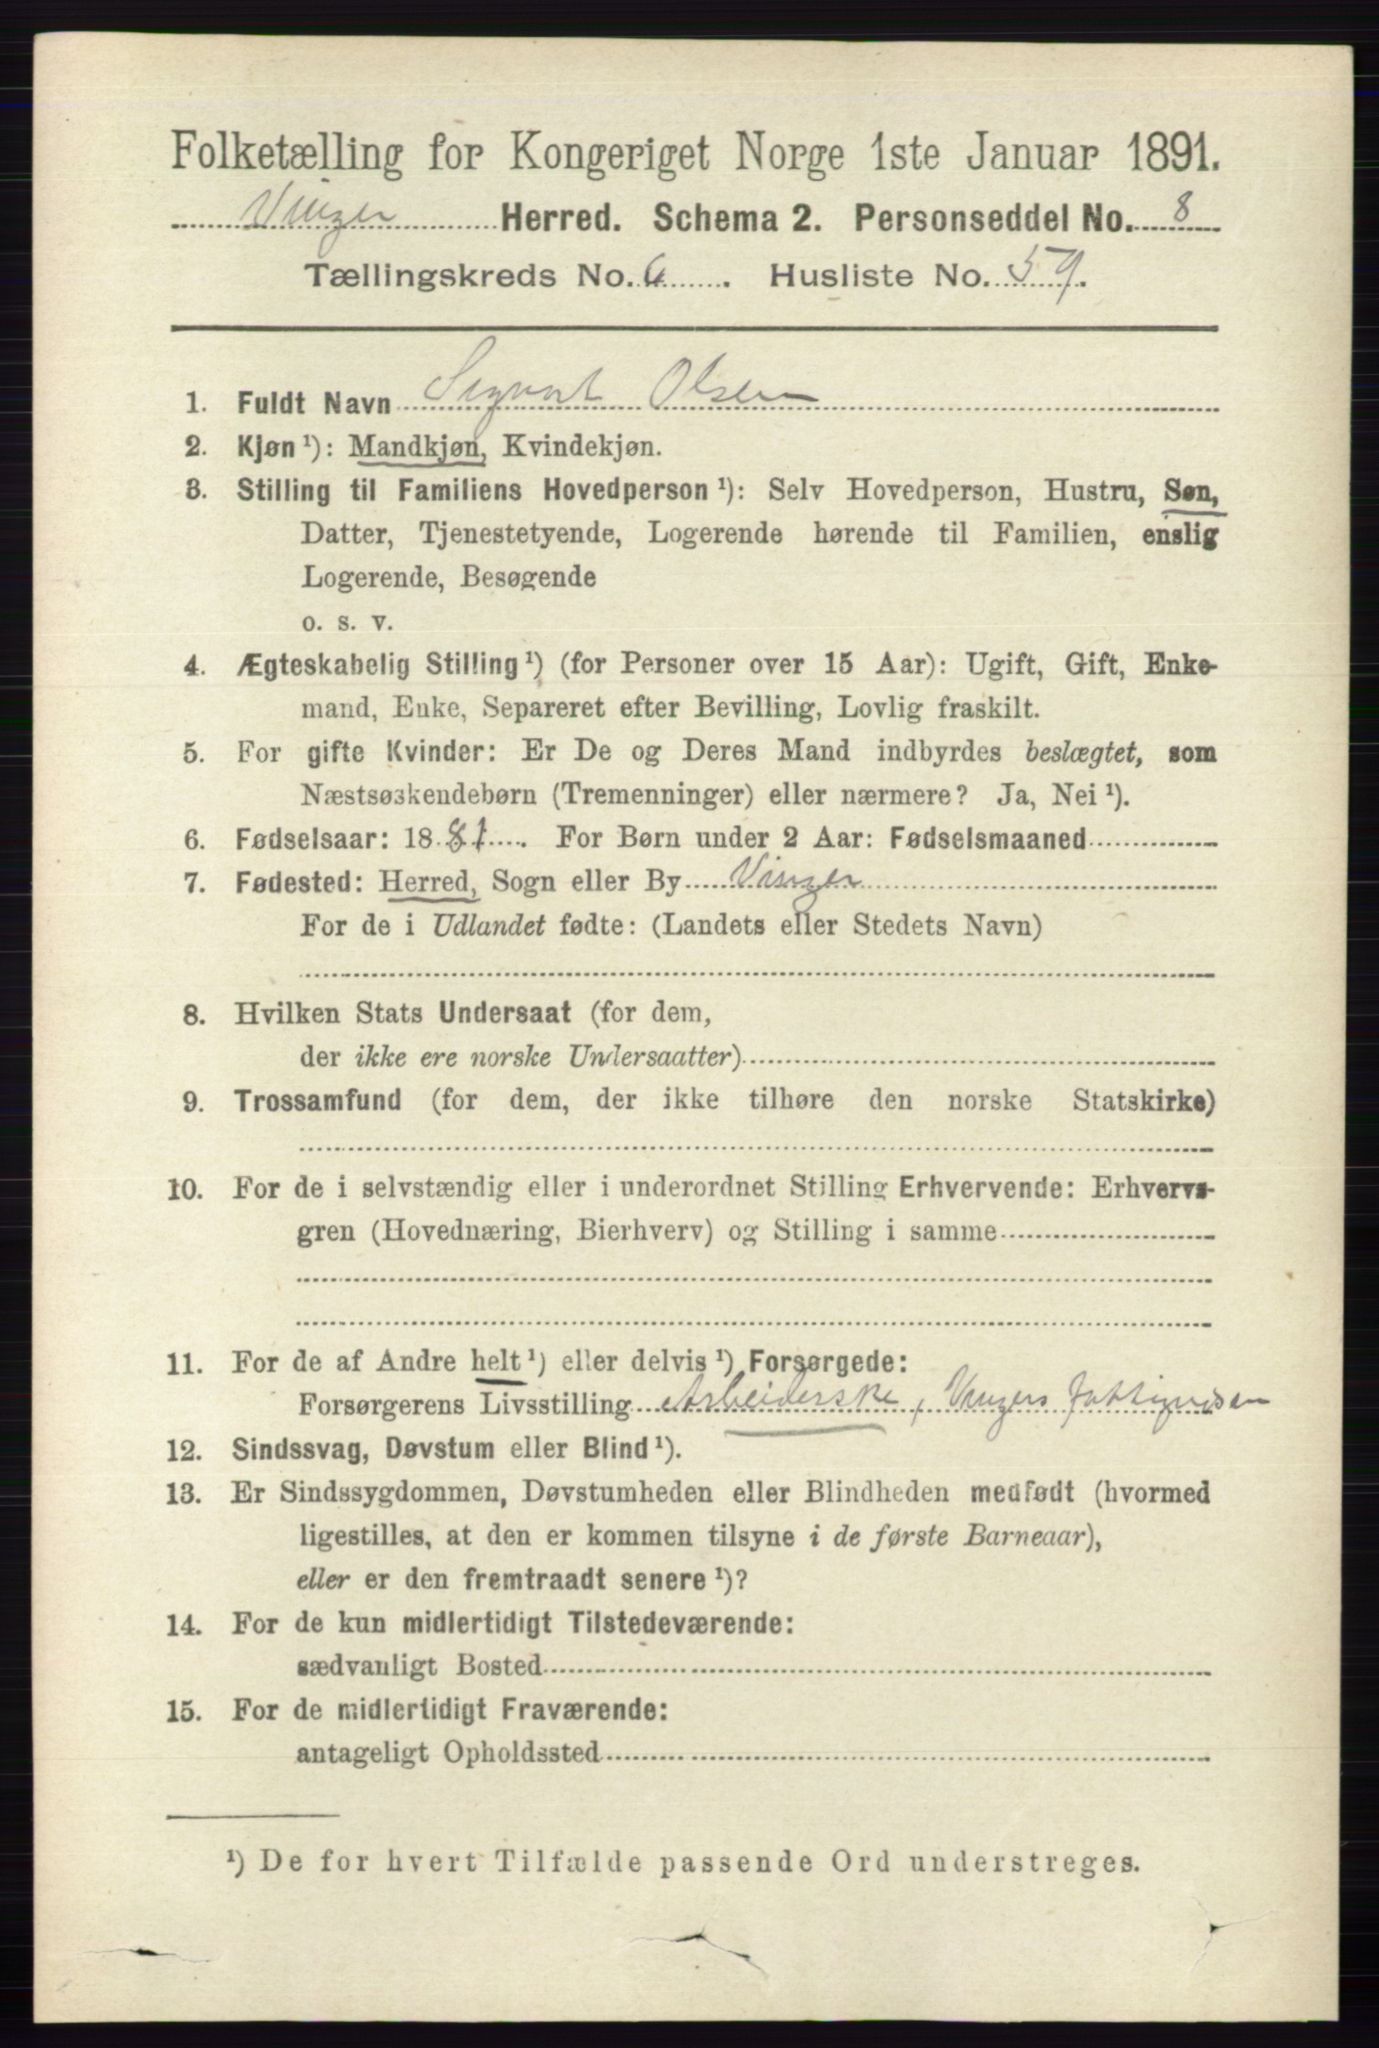 Folketælling for Kongeriget Norge 1ste Januar 1891.
Vinger Herred. Schema 2. Personseddel No. 8
Tællingskreds No. 6. Husliste No. 59.
1. Fuldt Navn Sigvart Olsen
2. Kjøn ¹): Mandkjøn, Kvindekjøn.
3. Stilling til Familiens Hovedperson ¹): Selv Hovedperson, Hustru, Søn,
Datter, Tjenestetyende, Logerende hørende til Familien, enslig
Logerende, Besøgende
o. s. v.
4. Ægteskabelig Stilling ¹) (for Personer over 15 Aar): Ugift, Gift, Enke-
mand, Enke, Separeret efter Bevilling, Lovlig fraskilt.
5. For gifte Kvinder: Er De og Deres Mand indbyrdes beslægtet, som
Næstsøskendebørn (Tremenninger) eller nærmere? Ja, Nei ¹).
6. Fødselsaar: 1881. For Børn under 2 Aar: Fødselsmaaned
7. Fødested: Herred, Sogn eller By Vinger
For de i Udlandet fødte: (Landets eller Stedets Navn)
8. Hvilken Stats Undersaat (for dem,
der ikke ere norske Undersaatter)
9. Trossamfund (for dem, der ikke tilhøre den norske Statskirke)
10. For de i selvstændig eller i underordnet Stilling Erhvervende: Erhvervs-
gren (Hovednæring, Bierhverv) og Stilling i samme
11. For de af Andre helt ¹) eller delvis ¹) Forsørgede:
Forsørgerens Livsstilling Arbeiderske, Vingers
12. Sindssvag, Døvstum eller Blind ¹).
13. Er Sindssygdommen, Døvstumheden eller Blindheden medfødt (hvormed
ligestilles, at den er kommen tilsyne i de første Barneaar),
eller er den fremtraadt senere ¹)?
14. For de kun midlertidigt Tilstedeværende:
sædvanligt Bosted
15. For de midlertidigt Fraværende:
antageligt Opholdssted
¹) De for hvert Tilfælde passende Ord understreges.